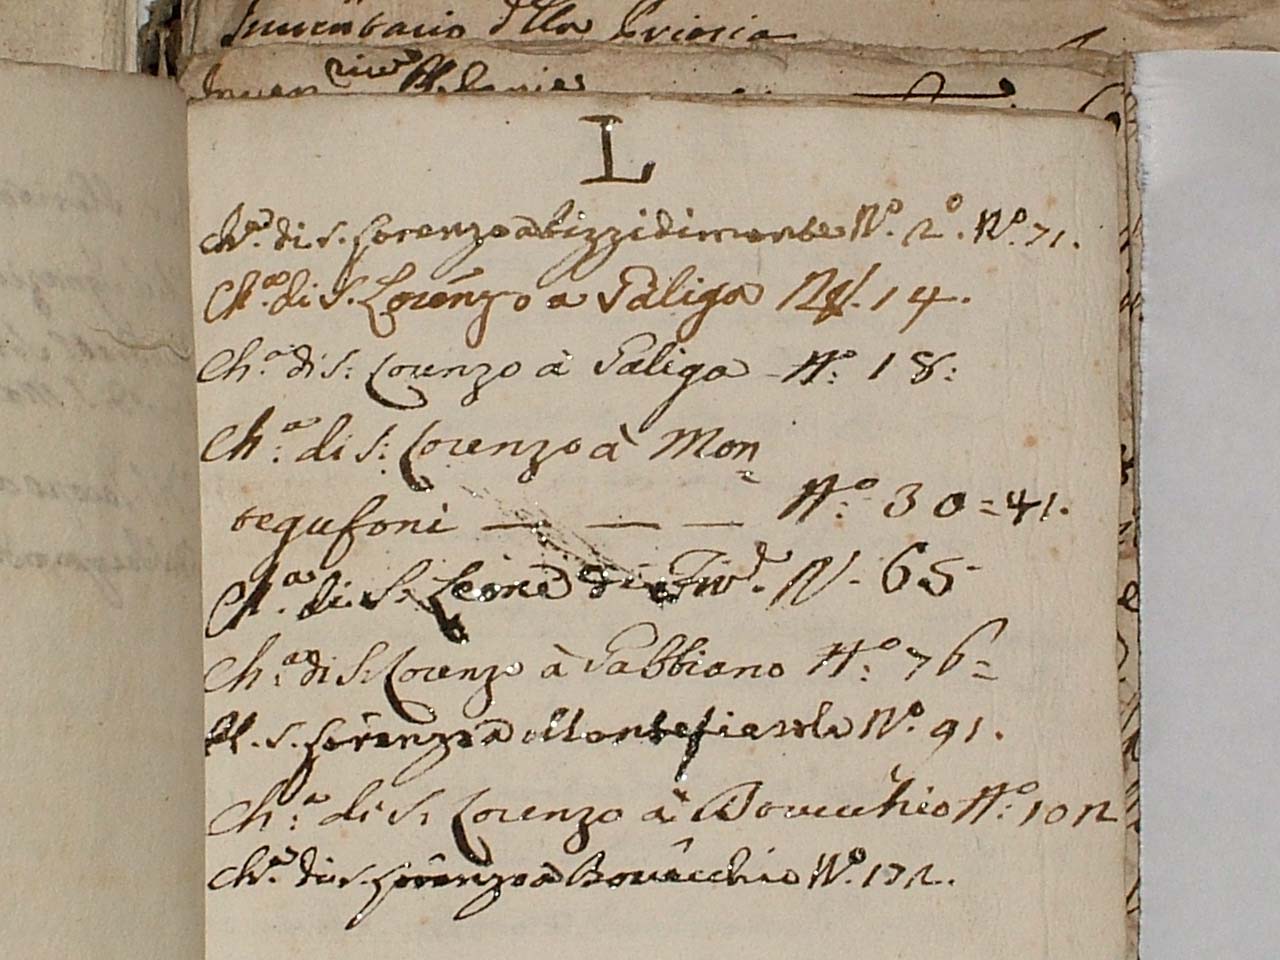 della
L
Ch.ª di S. Lorenzo à Vizzidimonte Nº. 2º. Nº. 71.
Ch.ª di S. Lorenzo a Galiga N. 14.
Ch.ª di S: Lorenzo à Galiga Nº: 18:
Ch.ª di S: Lorenzo à Mon
tegufoni — — — Nº: 30=41.
Ch.ª di S. Leone di Fir.ᵉ N. 65
Ch.ª di S. Lorenzo à Gabbiano Nº: 76=
S. Lorenzo à Montefiesole Nº. 91.
Ch.ª di S. Lorenzo à Bovecchio Nº: 102
Ch.ª di S. Lorenzo à Bovecchio Nº. 172.